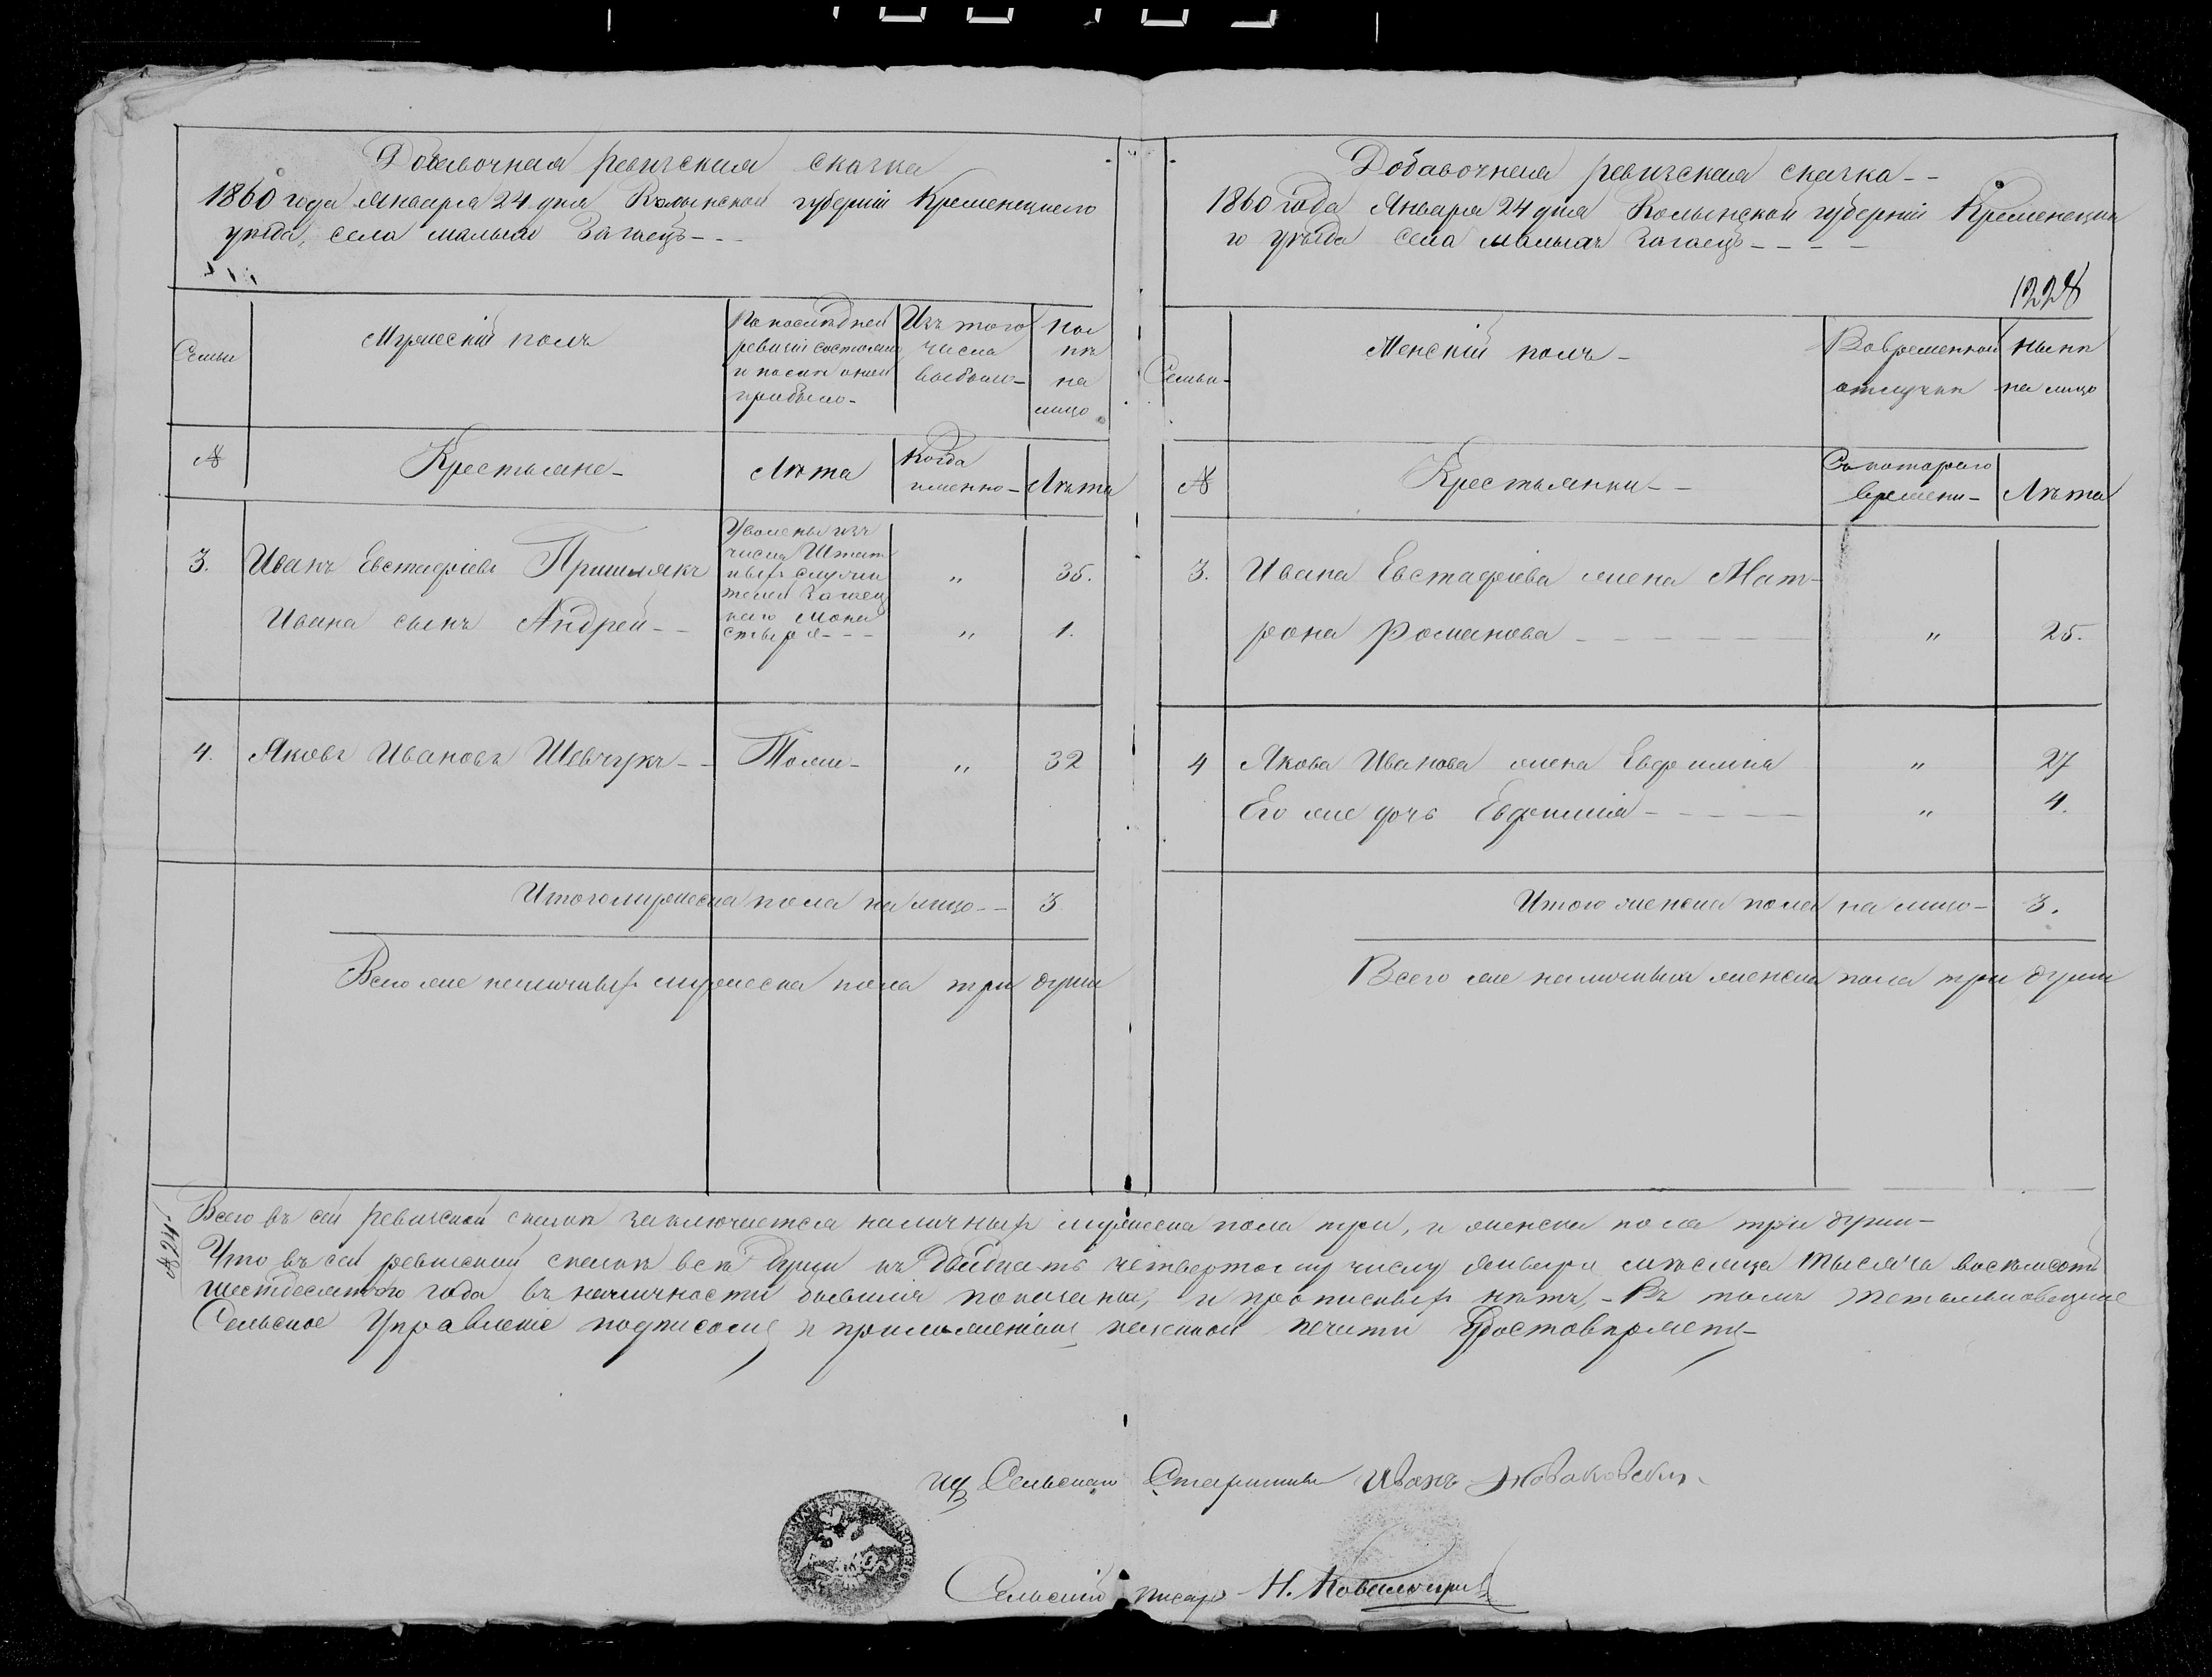 Добавочная ревизская сказка
1860 года Января 24 дня Волынской губерніи Кременецкого
уѣзда, села малыхъ Загаецъ - - -
Семьи
Мужескій полъ
По последней
ревизіи состояло
и после оной
прибыло -
Изъ того
числа
выбыло -
Ны
нѣ
на
лицо
№
Крестьяне -
Лѣта
Когда
именно -
Лѣта
3.
Иванъ Евстафіевъ Пришлякъ
Ивана сынъ Андрей - -
Уволены изъ
числа Штат
ныхъ служи
телей Загаец
каго Мона
стыря - - -
"
35.
"
1.
4.
Яковъ Ивановъ Шевчукъ - -
Тоже -
"
32
Итого мужеска пола на лицо - - 3
Всего же наличныхъ мужеска пола три души
Добавочная ревизская сказка - -
1860 года Января 24 дня Волынской губерніи Кременецка
го уѣзда села малыхъ Загаецъ - - - -
1228
Семьи -
Женскій полъ -
Во временной
отлучкѣ
нынѣ
на лицо
№
Крестьянки - -
Съ котораго
времени -
Лѣта
3.
Ивана Евстафіева жена Мат-
рона Романова - - - - - -
"
25.
4
Якова Иванова жена Евфимія
"
27
Его же дочь Евфимія - - - -
"
4.
Итого женска пола на лицо - 3.
Всего же наличныхъ женска пола три души
№ 24
Всего въ сей ревизской сказкѣ заключается наличныхъ мужеска пола три, и женска пола три души -
Что въ сей ревизской сказкѣ всѣ души къ двадцать четвертому числу Января мѣсяца тысяча восемьсотъ
шестдесятого года въ наличности бывшія показаны, и прописныхъ нѣтъ, - Въ томъ
Сельское Управленіе подписомъ и приложеніемъ казенной печати
ид Сельскаго Старшины Иванъ Новаковскій
Сельскій писарь Н.